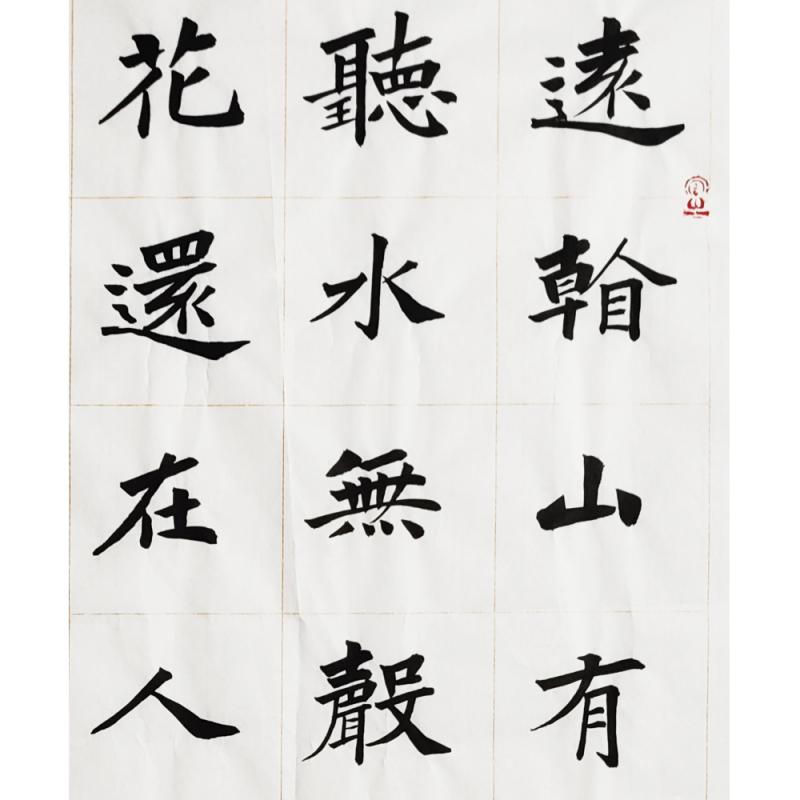 遠看山有
聽水無聲
花還在人